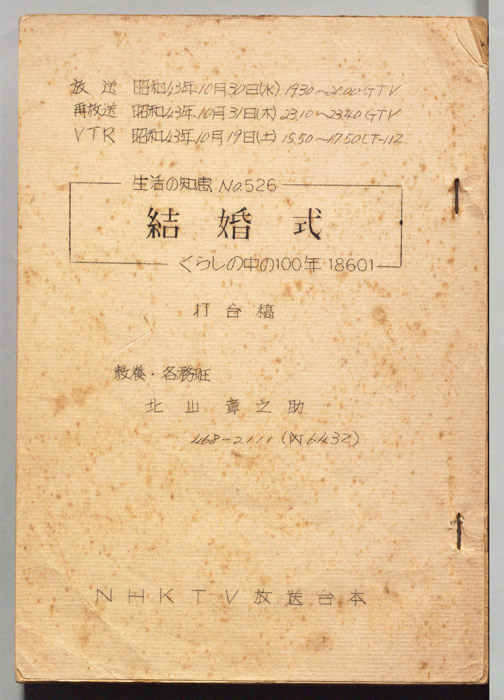 放送 昭和43年10月30日(水) 19.30〜20.00 GTV
再放送 昭和43年10月31日(木) 23.10〜23.40 GTV
VTR 昭和43年10月19日(土) 15.50〜17.50 CT-112
生活の知恵 No.526
結婚式
くらしの中の100年 18601
打台稿
教養・各務班
北山章之助
468-2111 (内6432)
NHKTV放送台本